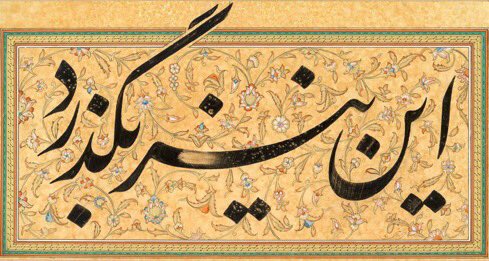 این نیز بگذرد